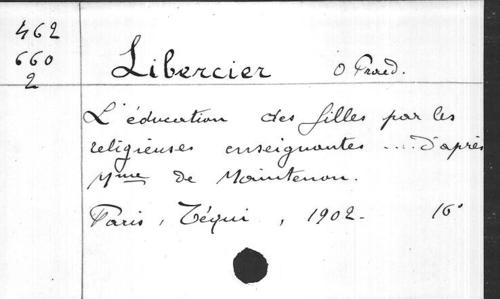 462
660
2
Libercier O Praed.
L'éducation des filles par les
religieuses enseignantes .... d'après
Mme de Maintenon.
Paris, Téqui, 1902. 16°